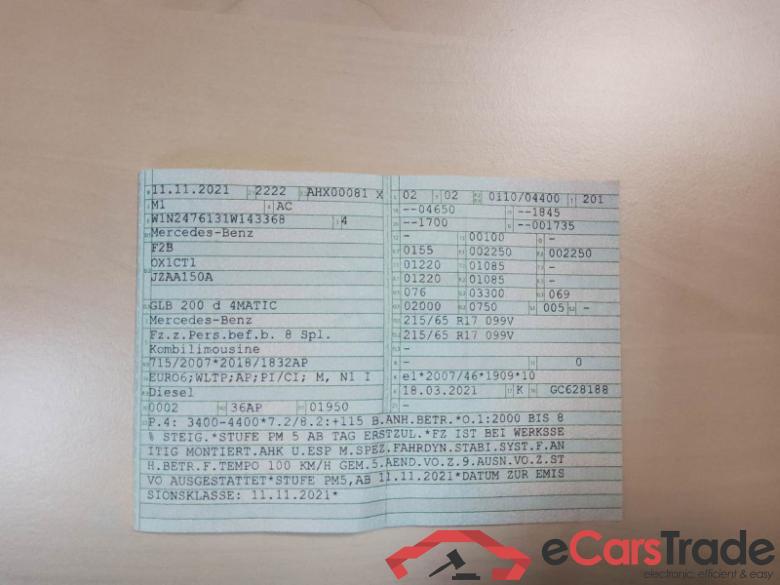 11.11.2021 2222 AHX00081 X
M1 AC
W1N2476131W143368 4
Mercedes-Benz
F2B
OX1CT1
JZAA150A
GLB 200 d 4MATIC
Mercedes-Benz
Fz.z.Pers.bef.b. 8 Spl.
Kombilimousine
715/2007*2018/1832AP
EURO6;WLTP;AP;PI/CI; M, N1 I
Diesel
0002 36AP 01950
02 02 0110/04400 201
--04650 --1845
--1700 --001735
- 00100 -
0155 002250 002250
01220 01085 -
01220 01085 -
076 03300 069
02000 0750 005 -
215/65 R17 099V
215/65 R17 099V
-
- 0
e1*2007/46*1909*10
18.03.2021 K GC628188
-
P.4: 3400-4400*7.2/8.2:+115 B.ANH.BETR.*O.1:2000 BIS 8
% STEIG.*STUFE PM 5 AB TAG ERSTZUL.*FZ IST BEI WERKSSE
ITIG MONTIERT.AHK U.ESP M.SPEZ.FAHRDYN.STABI.SYST.F.AN
H.BETR.F.TEMPO 100 KM/H GEM.5.AEND.VO.Z.9.AUSN.VO.Z.ST
VO AUSGESTATTET*STUFE PM5,AB 11.11.2021*DATUM ZUR EMIS
SIONSKLASSE: 11.11.2021*
eCarsTrade
electronic, efficient & easy